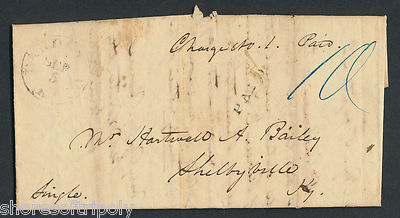 Charge No. 1. Paid.
10
PAID
Mr. Hartwell A. Bailey
Shelbyville
Ky.
Single.
shoresoftripoly